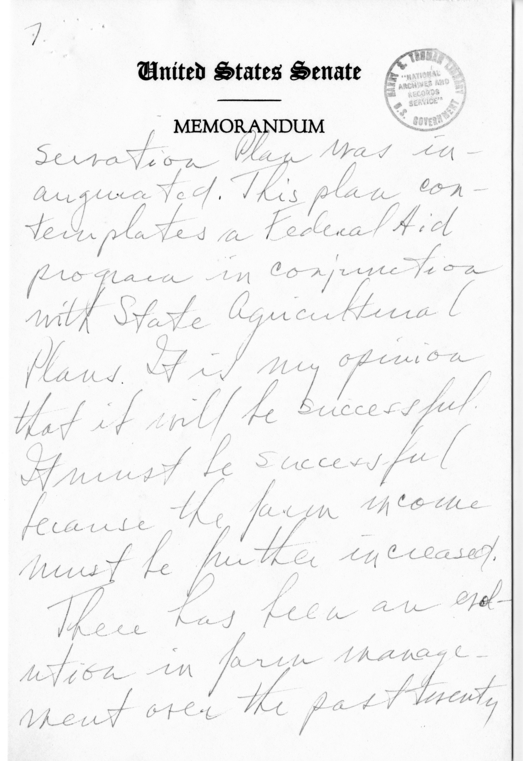 7.
United States Senate
HARRY S. TRUMAN LIBRARY
"NATIONAL
ARCHIVES AND
RECORDS
SERVICE"
U.S. GOVERNMENT
MEMORANDUM
servation Plan was in-
augurated. This plan con-
templates a Federal Aid
program in conjunction
with State Agricultural
Plans. It is my opinion
that it will be successful.
It must be successful
because the farm income
must be further increased.
There has been an evol-
ution in farm manage-
ment over the past twenty